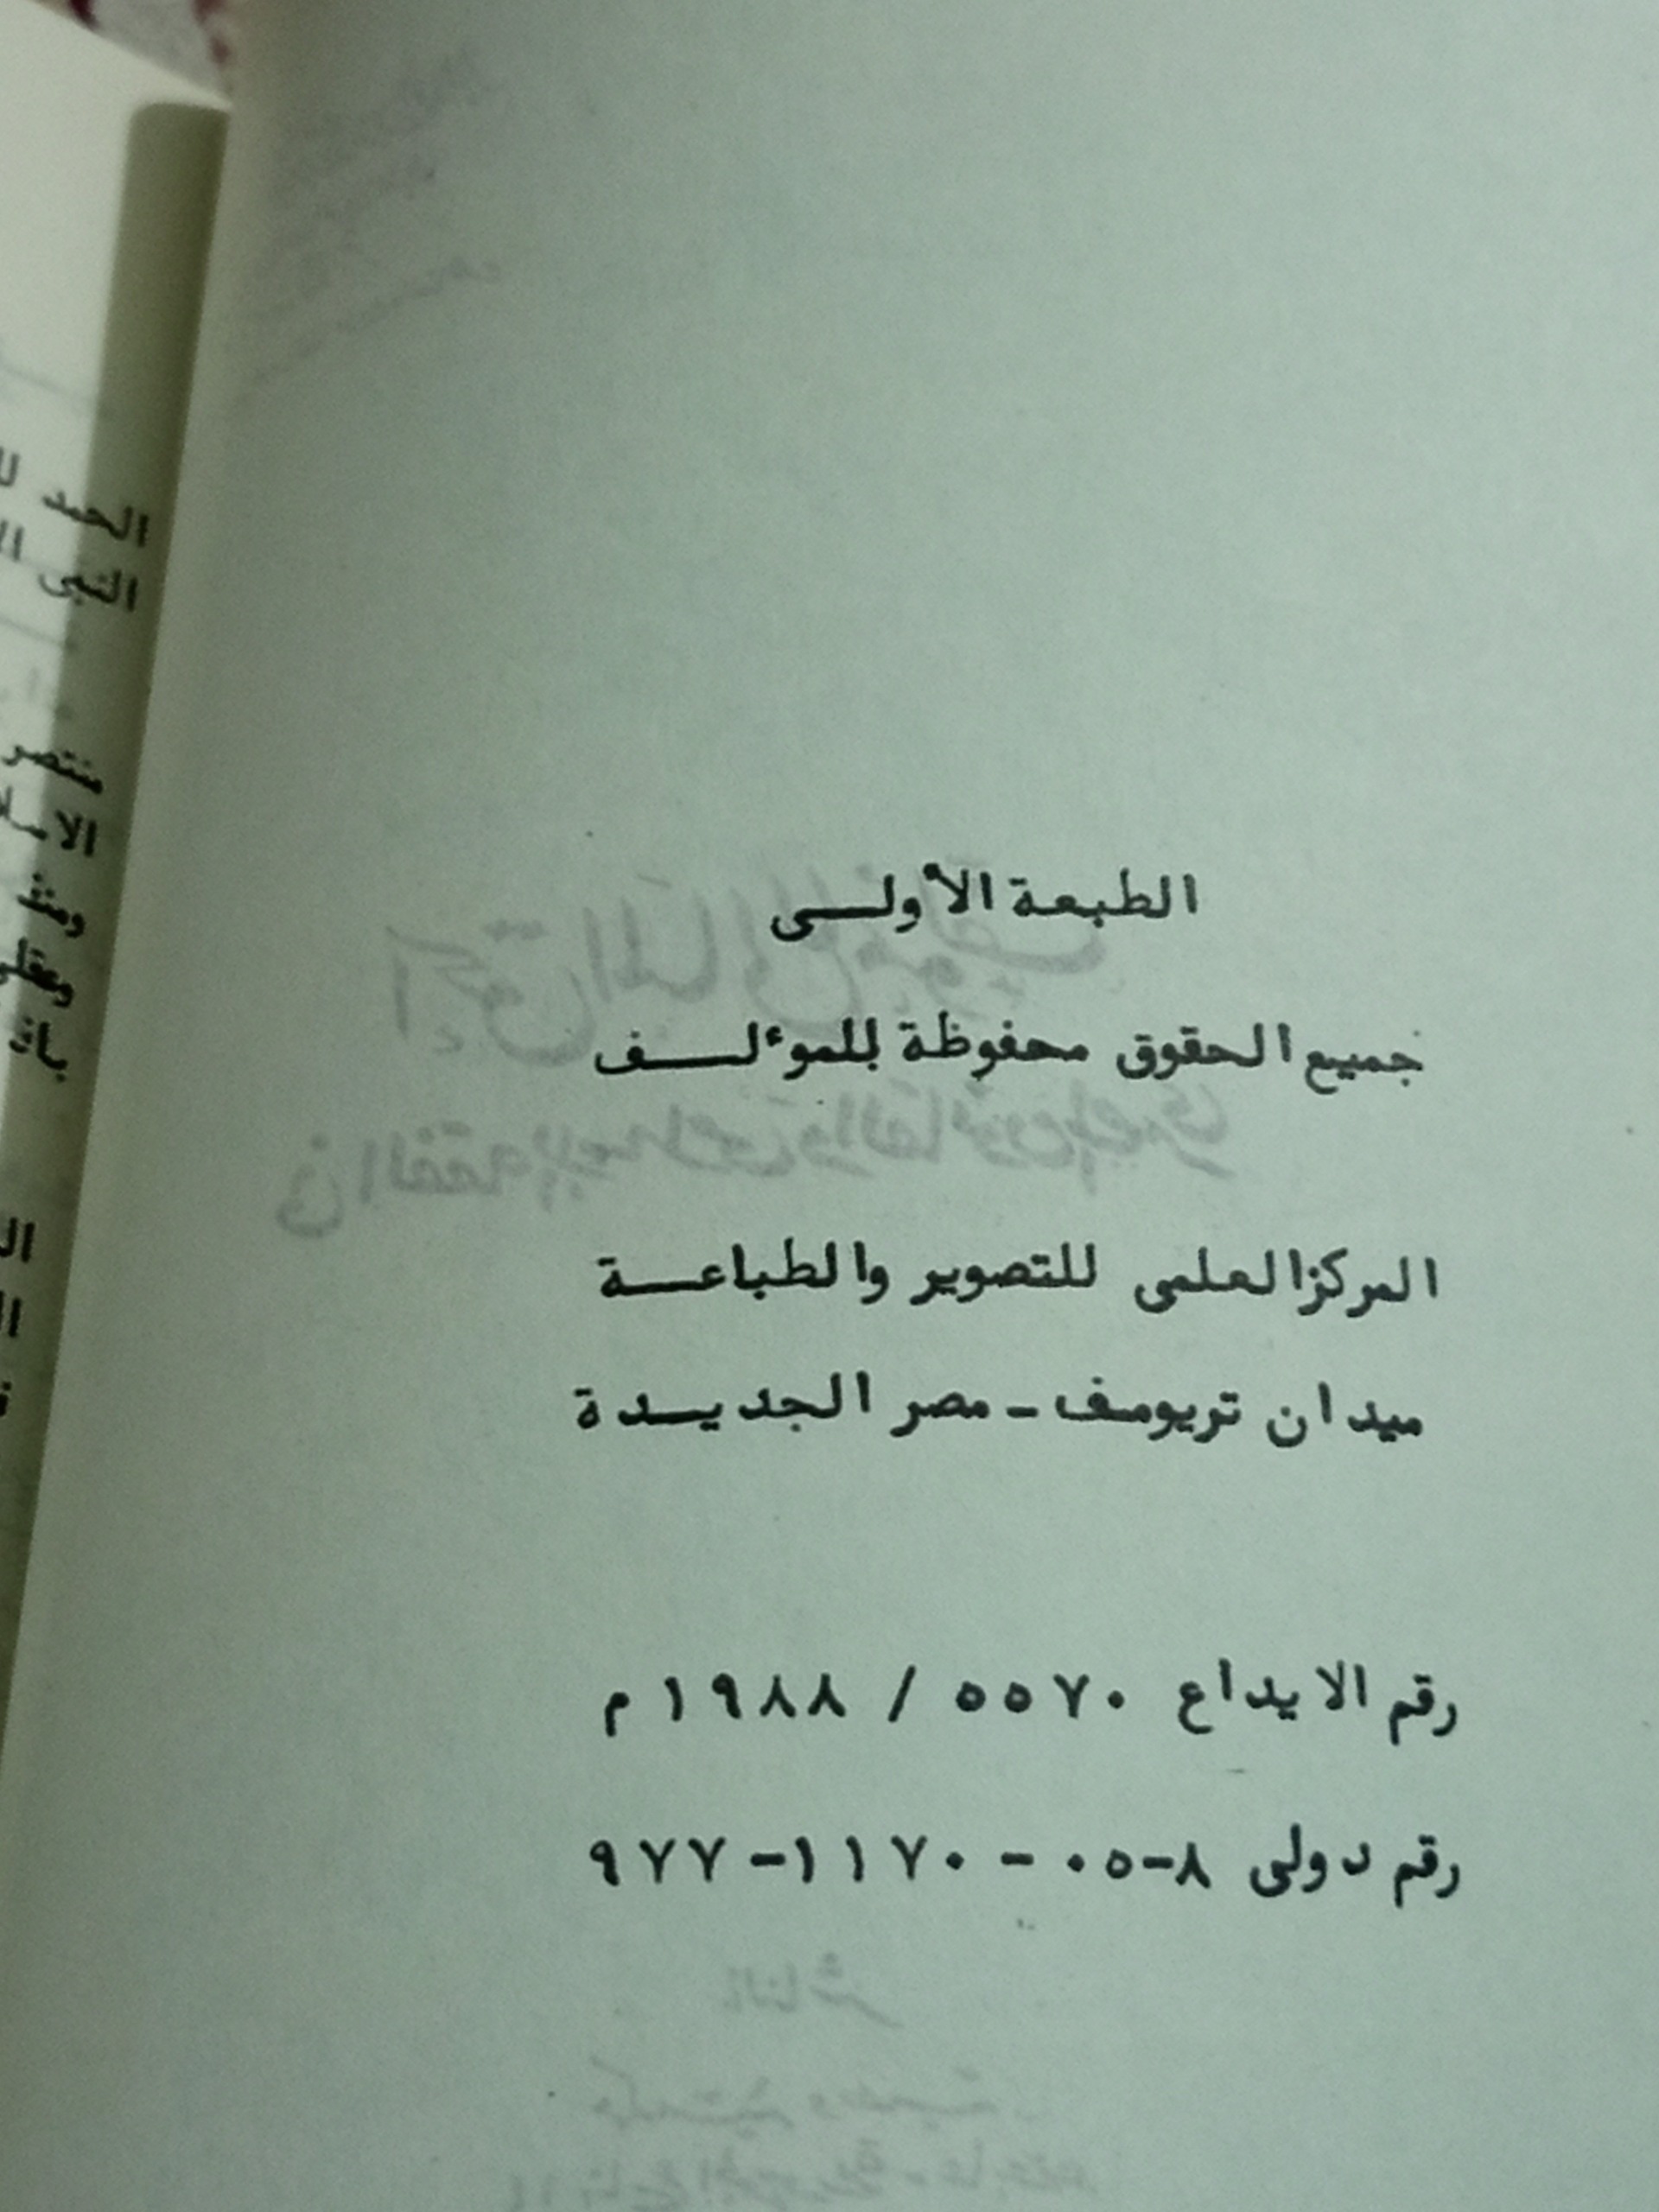 الطبعة الأولــى
جميع الحقوق محفوظة للموءلـــف
المركز العلمى للتصوير والطباعــة
ميدان تريومف ـ مصر الجديــدة
رقم الايداع ٥٥٧٠ / ١٩٨٨ م
رقم دولى ٨-٠٥ - ١١٧٠-٩٧٧
الحمد
النبى
منتصر
ومنذ